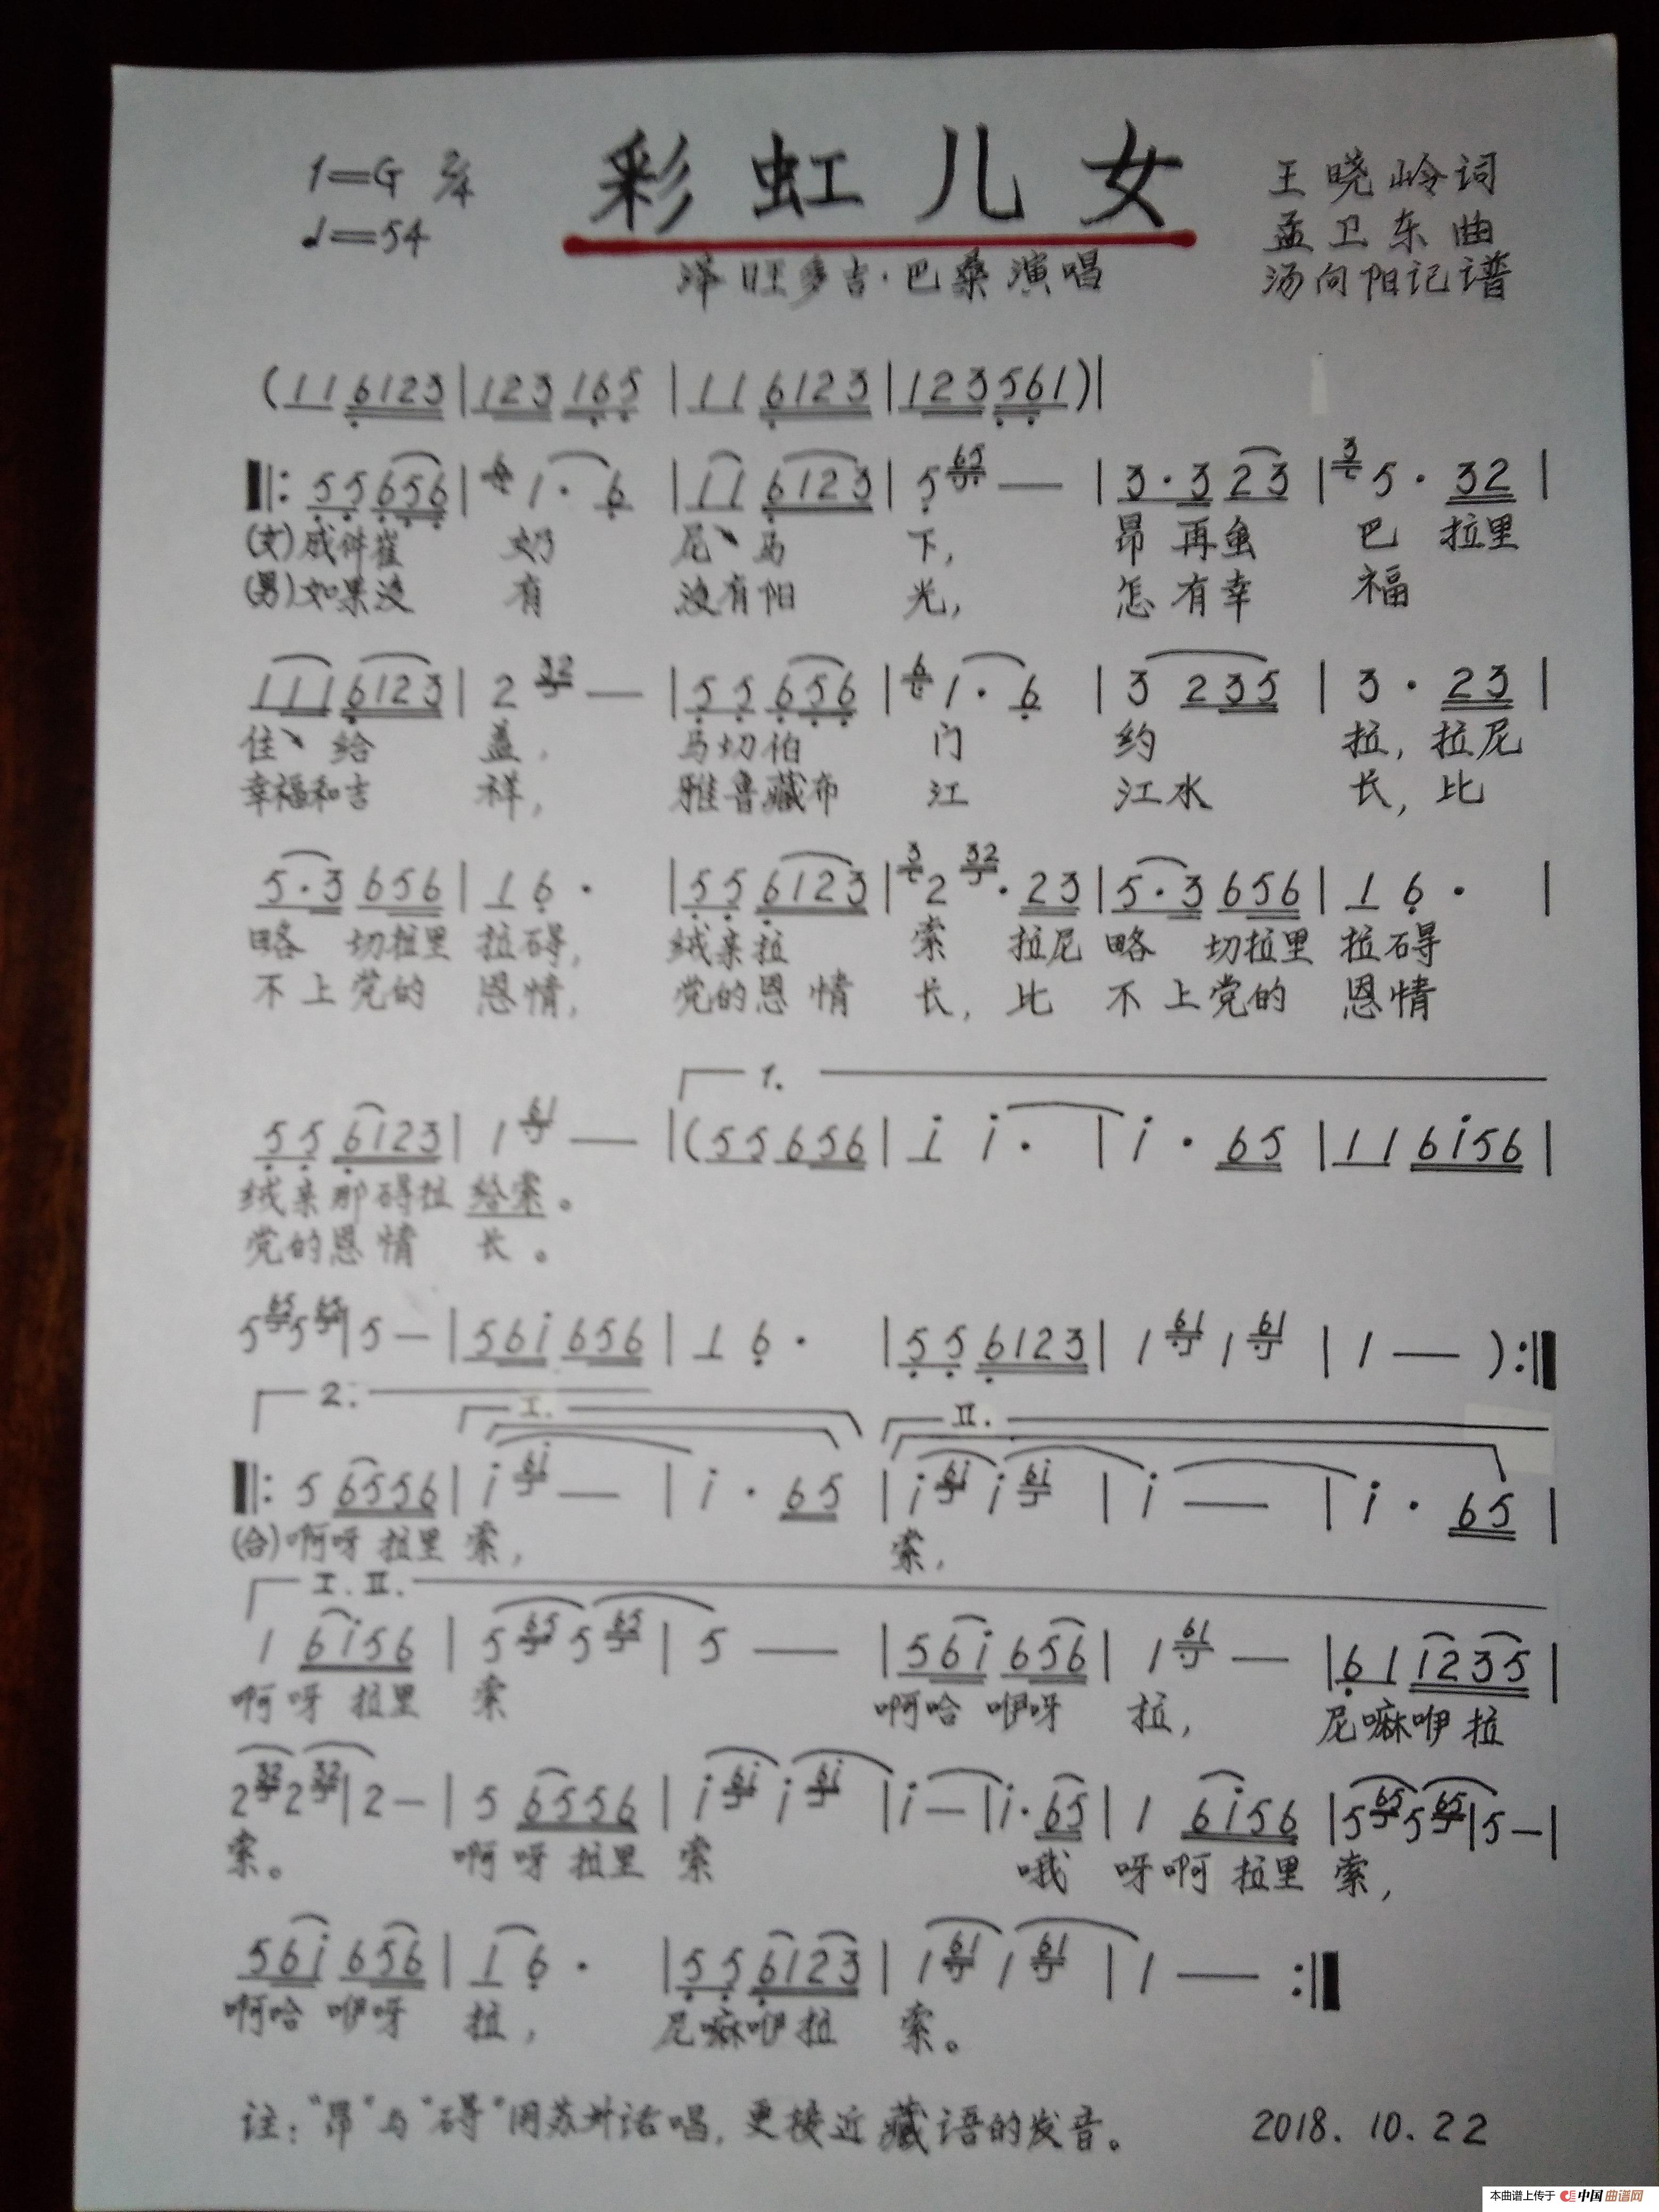 1=G 2/4 彩虹儿女 王晓岭词
♩=54 孟卫东曲
泽旺多吉·巴桑演唱 汤向阳记谱
(11 6123|123 165|11 6123|123561)|
‖: 55 656|6 1· 6|11 6123|5 65 —|3·3 23|3 5· 32|
(女)成件崔 奶 尼、马 下, 昂再 巴 拉里
(男)如果没 有 没有阳 光, 怎有幸 福
111 6123|2 32 —|55 656|6 1· 6|3 235|3· 23|
住、给 盖, 马切伯 门 约 拉, 拉尼
幸福和吉 祥, 雅鲁藏布 江 江水 长, 比
5·3 656|1 6·|55 6123|3 2 32· 23|5·3 656|1 6·|
略 切拉里 拉碍, 绒亲拉 索 拉尼 略 切拉里 拉碍
不上党的 恩情, 党的恩情 长, 比 不上党的 恩情
1.
55 6123|1 61 —|(55 656|i i·|i· 65|11 6i56|
绒亲那碍拉 给索。
党的恩情 长。
5 65 5 65|5 —|56i 656|1 6·|55 6123|1 61 1 61|1 —):‖
2. I. II.
‖: 5 6556|i 6i —|i· 65|i 6i i 6i|i —|i· 65|
(合)啊呀拉里 索, 索,
I. II.
1 6i56|5 65 5 65|5 —|56i 656|1 61 —|61 i235|
啊呀拉里 索 啊哈咿呀 拉, 尼嘛咿拉
2 32 2 32|2 —|5 6556|i 6i i 6i|i —|i· 65|1 6i56|5 65 5 65|5 —|
索。 啊呀拉里 索 哦 呀啊拉里 索,
56i 656|1 6·|55 6123|1 61 1 61|1 — :‖
啊哈咿呀 拉, 尼嘛咿拉 索。
注:“昂”与“碍”用苏州话唱,更接近藏语的发音。 2018.10.22
本曲谱上传于 中国曲谱网